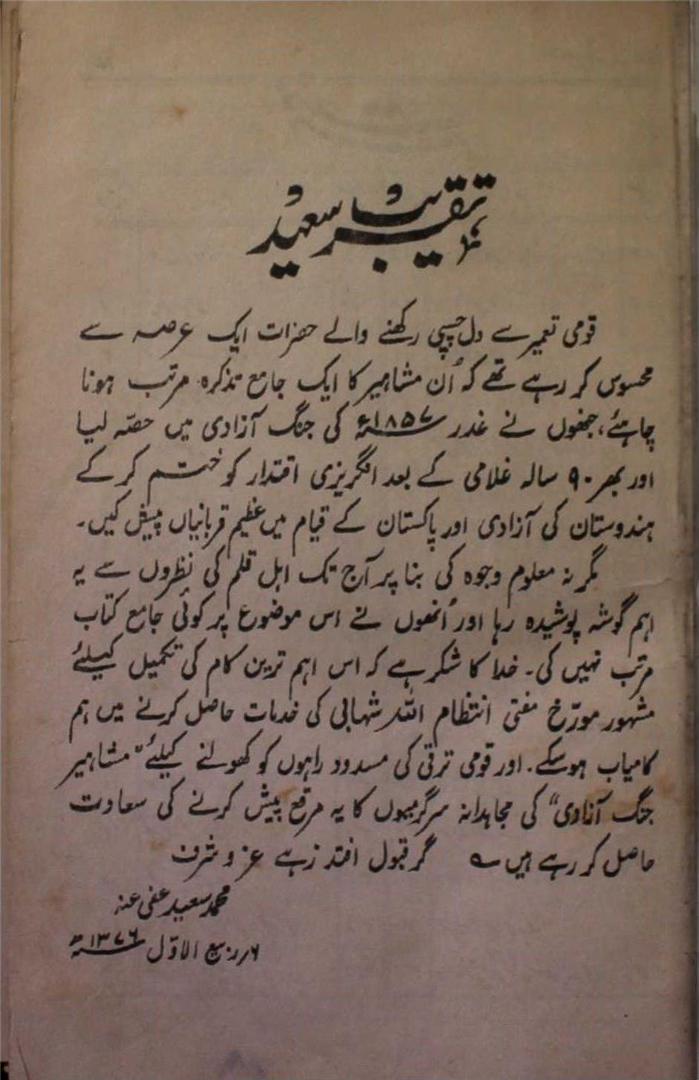 تقریب سعید
قومی تعمیر سے دل چسپی رکھنے والے حضرات ایک عرصہ سے
محسوس کر رہے تھے کہ اُن مشاہیر کا ایک جامع تذکرہ مرتب ہونا
چاہئے، جنھوں نے غدر ۱۸۵۷ء کی جنگ آزادی میں حصّہ لیا
اور پھر ۹۰ سالہ غلامی کے بعد انگریزی اقتدار کو ختم کر کے
ہندوستان کی آزادی اور پاکستان کے قیام میں عظیم قربانیاں پیش کیں۔
مگر نہ معلوم وجوہ کی بنا پر آج تک اہل قلم کی نظروں سے یہ
اہم گوشہ پوشیدہ رہا اور اُنھوں نے اس موضوع پر کوئی جامع کتاب
مرتب نہیں کی۔ خدا کا شکر ہے کہ اس اہم ترین کام کی تکمیل کیلئے
مشہور مورّخ مفتی انتظام اللہ شہابی کی خدمات حاصل کرنے میں ہم
کامیاب ہو سکے۔ اور قومی ترقی کی مسدود راہوں کو کھولنے کیلئے "مشاہیر
جنگ آزادی" کی مجاہدانہ سرگرمیوں کا یہ مرقع پیش کرنے کی سعادت
حاصل کر رہے ہیں ؎ گر قبول افتد زہے عز و شرف
محمد سعید عفی عنہ
۶ر ربیع الاوّل ۱۳۷۶ھ